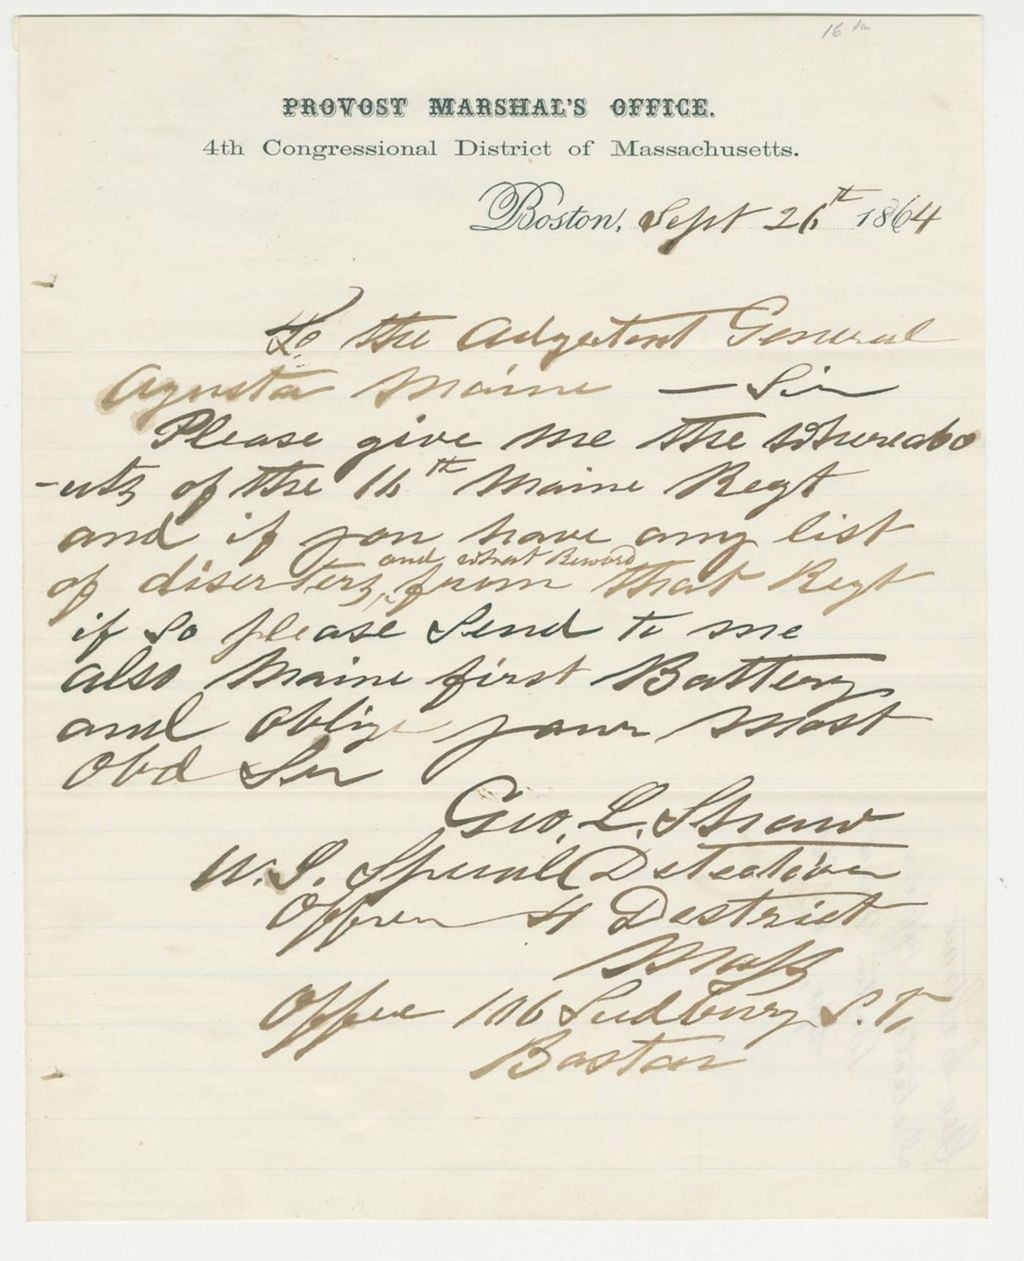 16 th
PROVOST MARSHAL'S OFFICE.
4th Congressional District of Massachusetts.
Boston, Sept 26th 1864
To the Adgetant General
Agusta Maine — Sir
Please give me the whereabo
-uts of the 16th Maine Regt
and if you have any list
and what Reward
of diserters, from that Regt
if so please Send to me
also Maine first Battery
and oblige your most
Obd Ser
Geo. L. Shaw
U.S. Special Detective
Officer 4 District
Mass
Office 106 Sudbury S.T,
Boston